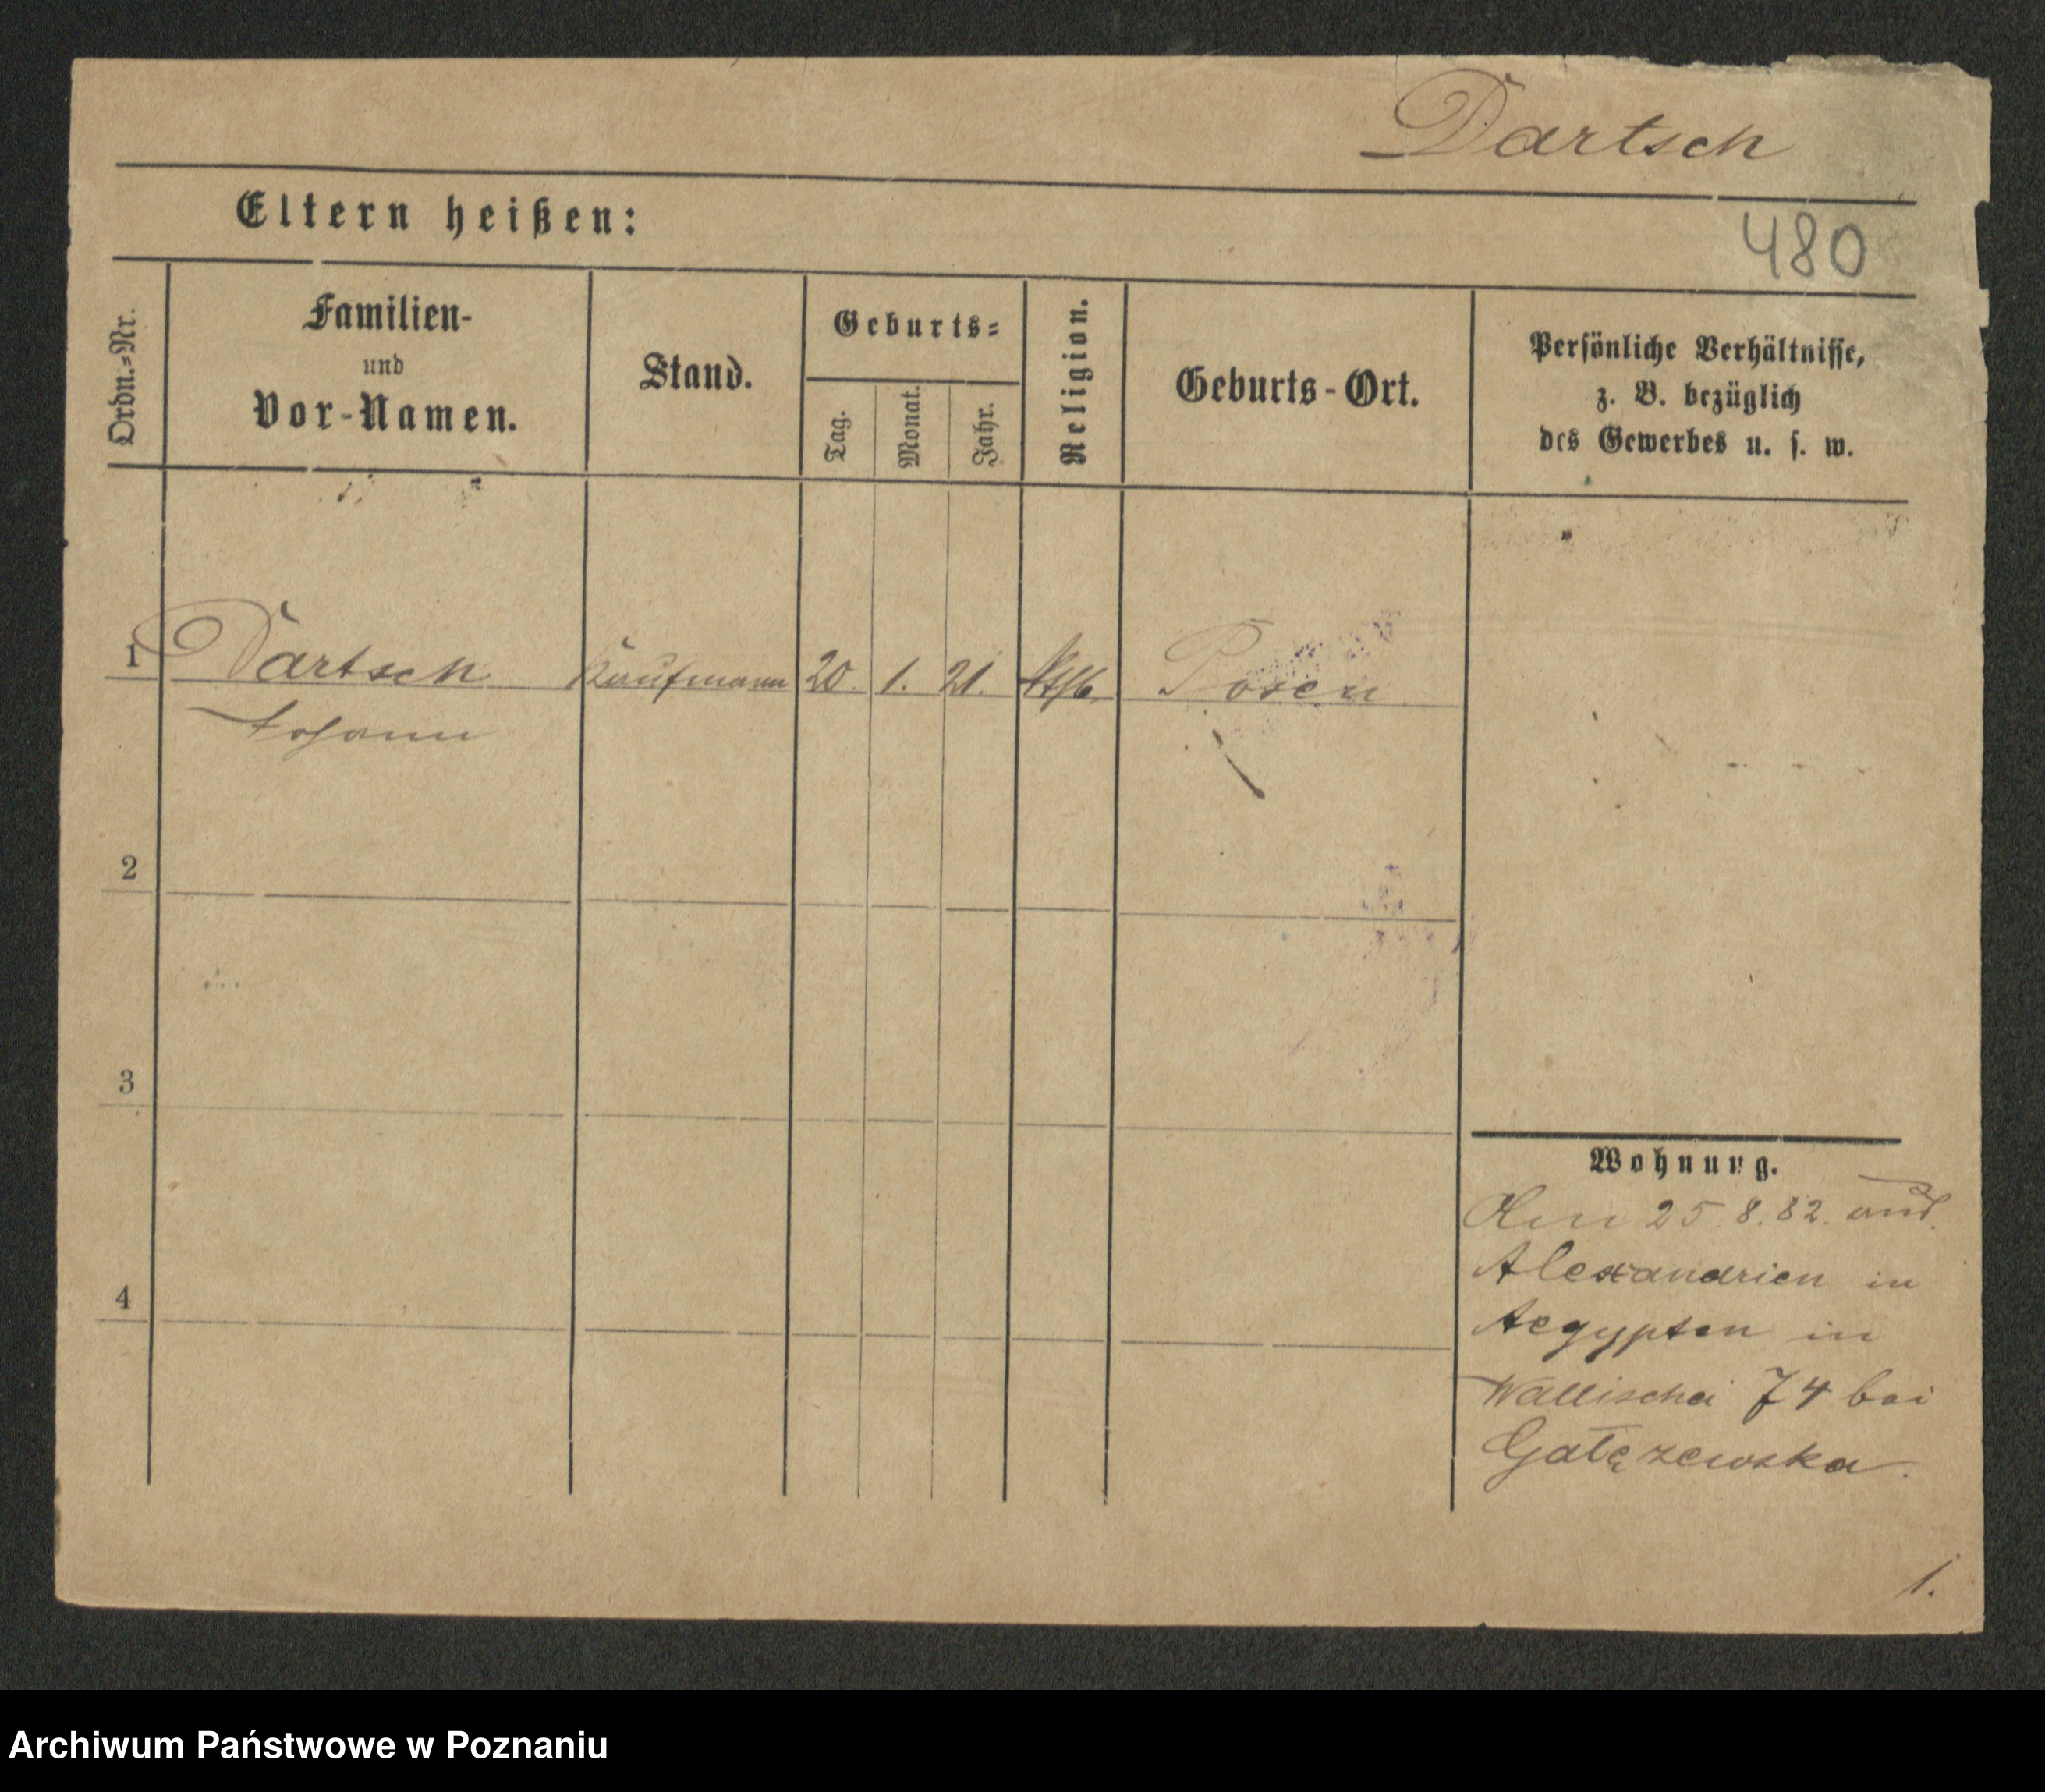 Dartsch
Eltern heißen:
480
Ordn.=Nr.
Familien-
und
Vor-Namen.
Stand.
Geburts=
Tag.
Monat.
Jahr.
Religion.
Geburts-Ort.
Persönliche Verhältnisse,
z. B. bezüglich
des Gewerbes u. s. w.
1 Dartsch Kaufmann 20. 1. 21. Posen
Johann
2
3
4
Wohnung.
25.8.82. aus
Alexandrien in
Aegypten in
Wallischei 74 bei
Gałęzewska.
1.
Archiwum Państwowe w Poznaniu